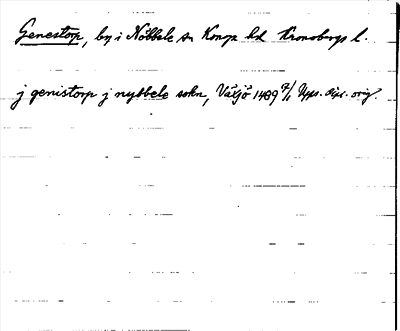 Genestorp, by i Nöbbele sn Konga hd Kronobergs l.
j genistorp j nybbele sokn, Växjö 1489 7/1 Upps. dipl. orig.